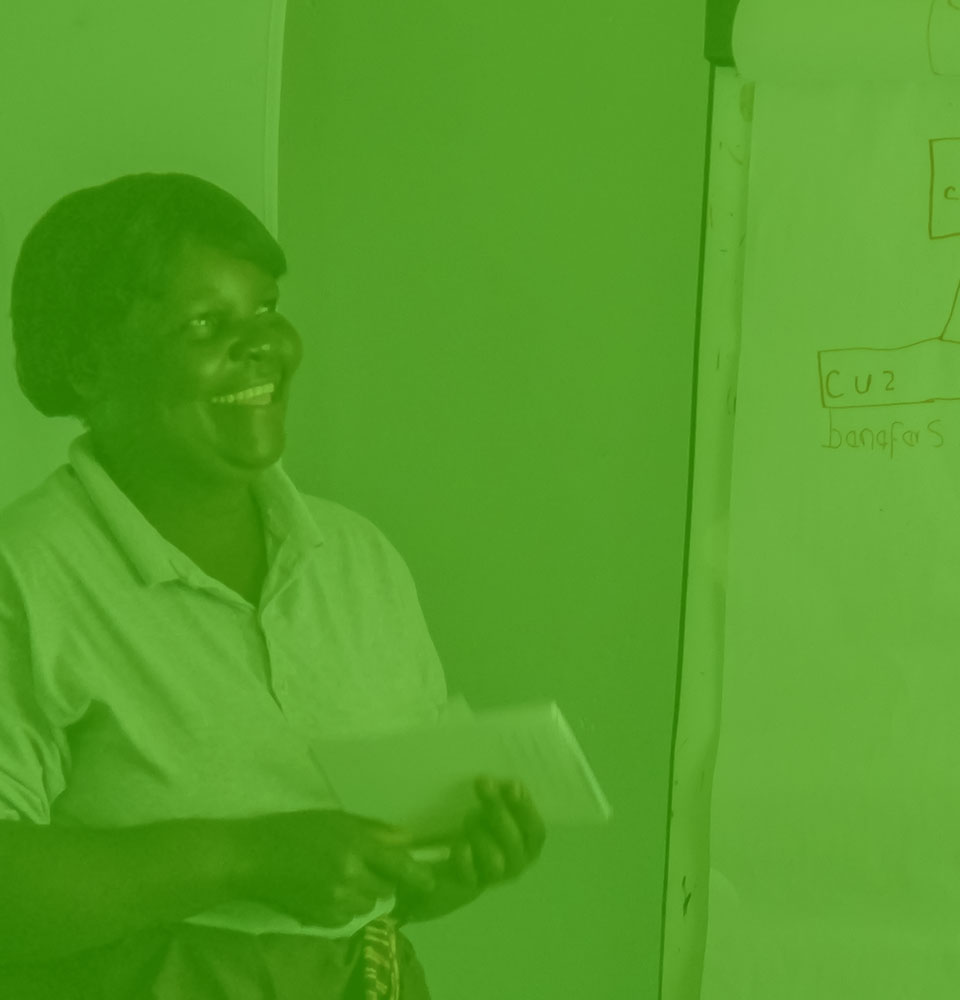 c
CU2
banafars